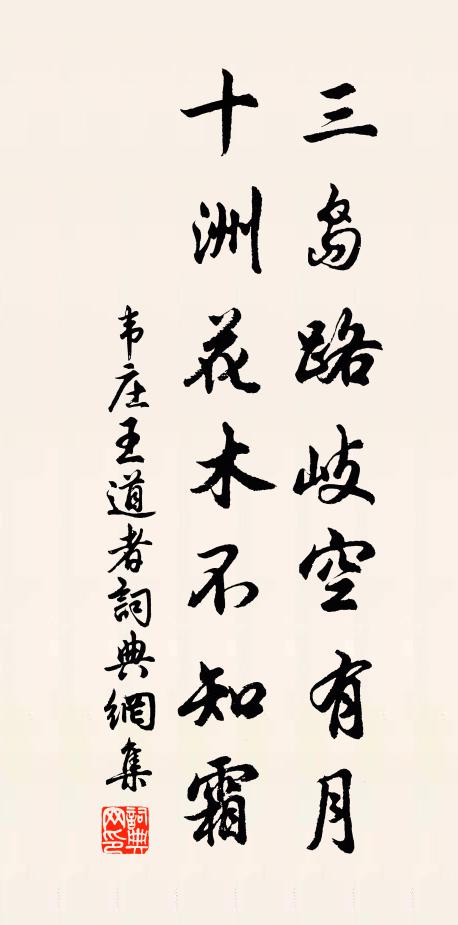 三岛路岐空有月
十洲花木不知霜
韦庄王道者詞典網集
詞典网印